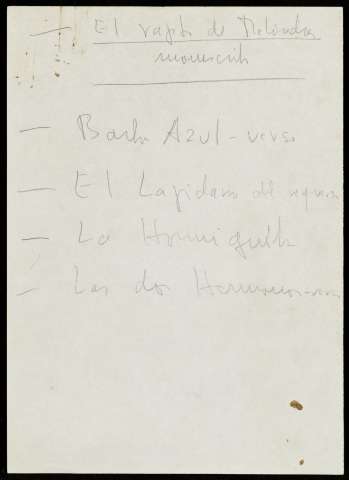 — El rapto de
manuscrito
— Barba Azul - verso
— El Lapidario del
— La Hormiguita
— Las dos Hermanas - verso